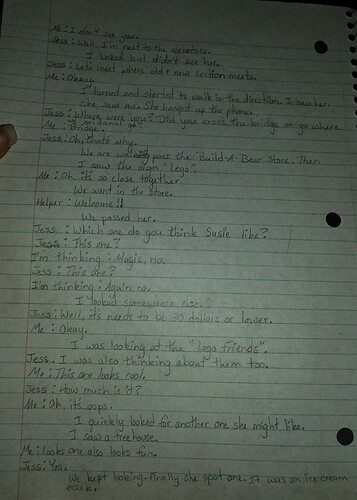 Me: I don't see you.
Jess: Well, I'm next to the elevators.
I looked but didn't see her.
Jess: Lets meet where old + new section meets.
Me: Okay.
I turned and started to walk in the direction. I saw her.
She saw me. She hanged up the phone.
Jess: Where were you? Did you cross the bridge or go where
Me: Bridge.
Jess: Oh, that's why.
We are walking pass the Build-A-Bear Store. Then
I saw the sign "Lego".
Me: Oh, it's so close together.
We went in the store.
Helper: Welcome!!
We passed her.
Jess: Which one do you think Susie like?
Jess: This one?
I'm thinking: Magic, no.
Jess: This one?
I'm thinking: Again, no.
I looked somewhere else.
Jess: Well, it's needs to be 30 dollars or lower.
Me: Okay.
I was looking at the "Lego Friends".
Jess: I was also thinking about them too.
Me: This one looks cool.
Jess: How much is it?
Me: Oh, it's oops.
I quickly looked for another one she might like.
I saw a treehouse.
Me: looks one also looks fun.
Jess: Yea.
We kept looking. Finally she spot one. It was an ice cream
truck.